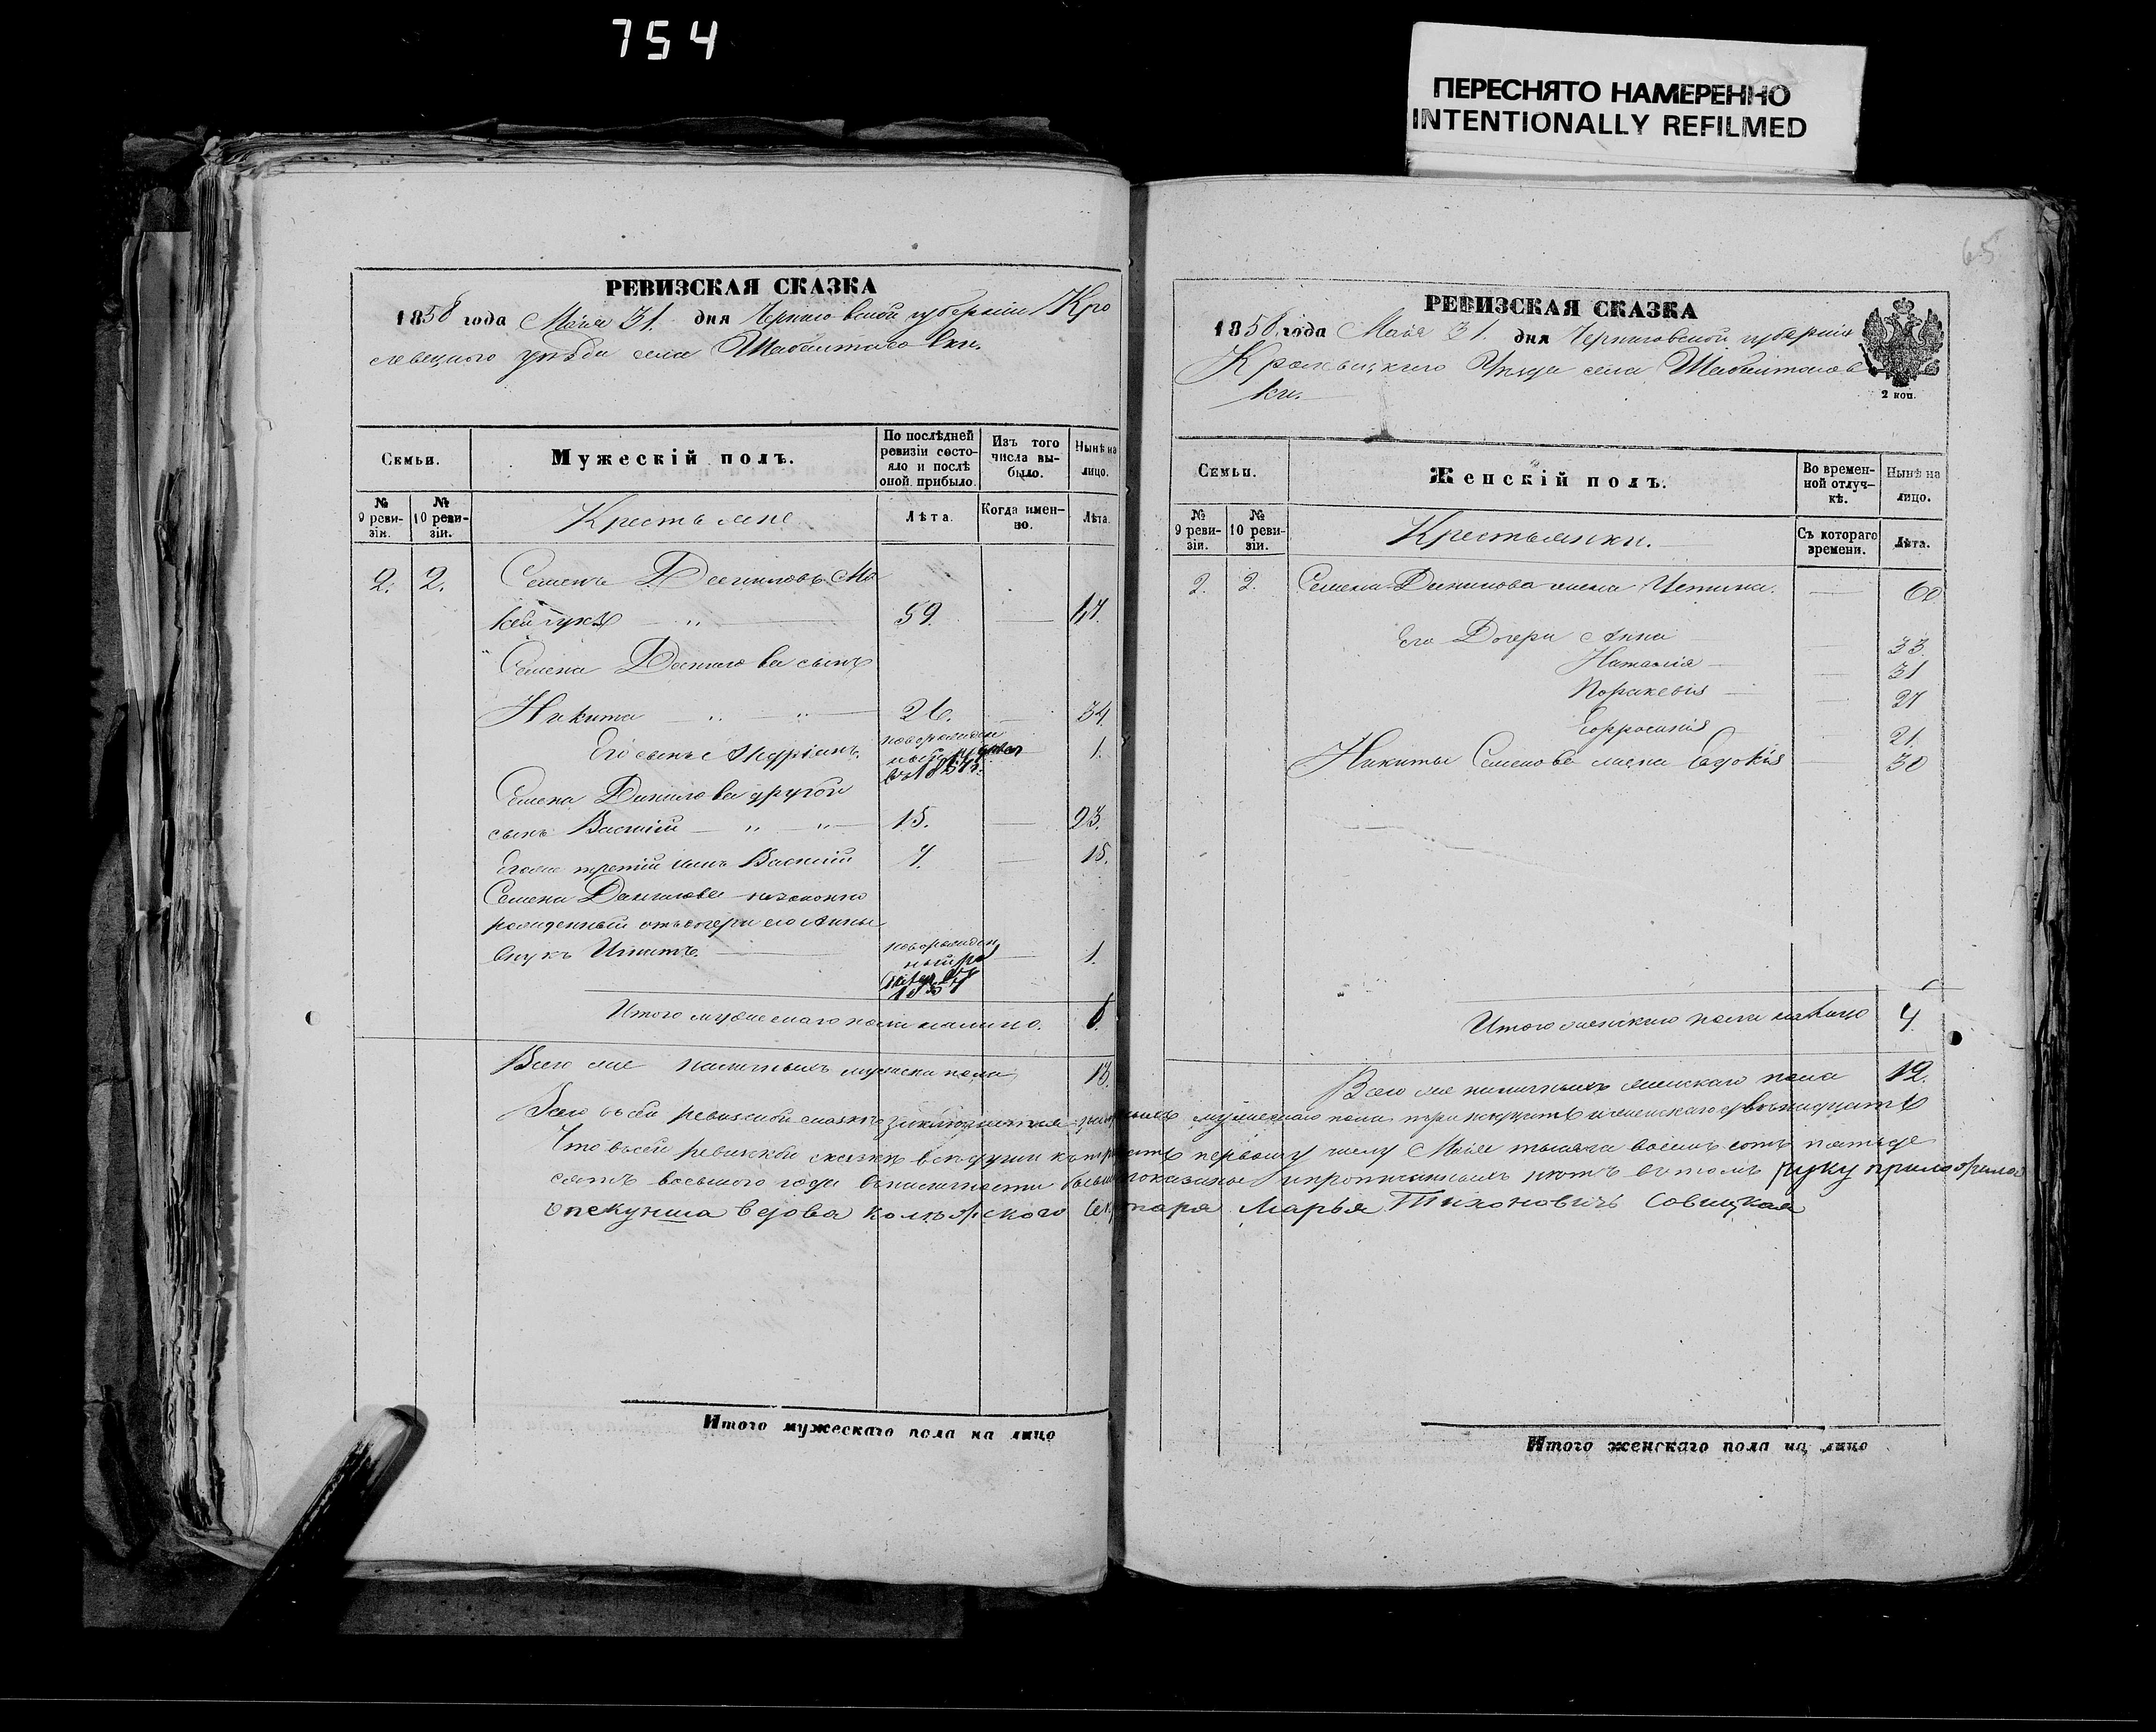 754
ПЕРЕСНЯТО НАМЕРЕННО
INTENTIONALLY REFILMED
65
РЕВИЗСКАЯ СКАЗКА
1858 года Мая 31. дня Черниговской губернии Кро
левецкого уѣзда села Шабалтасовки.
Семьи.
Мужескій полъ.
По послѣдней ревизіи состояло и послѣ оной прибыло.
Изъ того числа выбыло.
Нынѣ на лицо.
№ 9 ревизіи.
№ 10 ревизіи.
Крестьяне
Лѣта.
Когда именно.
Лѣта.
2. 2. Семенъ Даниловъ Мо
59.
Семена Данилова сынъ
Никита 26. 34.
Его сынъ Андріянъ новорожден 1.
Семена Данилова другой
сынъ Василій 15. 23.
Его же третій сынъ Василій 7. 15.
Семена Данилова незаконно
рожденный отъ дочери его Анны
внукъ новорожден
ный 1.
1857
Итого мужескаго пола на лицо.
Всего же наличныхъ мужеска пола 13.
РЕВИЗСКАЯ СКАЗКА
1858 года Мая 31. дня Черниговской губерніи
Кролевецкаго Уѣзда села Шабалтасов
ки.
2 коп.
Семьи.
Женскій полъ.
Во временной отлучкѣ.
Нынѣ на лицо.
№ 9 ревизіи.
№ 10 ревизіи.
Крестьянки.
Съ котораго времени.
Лѣта.
2. 2. Семена Данилова жена Устина. 60
Его Дочери Анна 33.
Наталія 31
Параскевія 27
Ефросинія 21.
Никиты Семенова жена Евдокія 30
Итого женскаго пола на лицо 4
Всего же наличныхъ женскаго пола 12.
Всего въ сей ревизской сказкѣ заключается мужескаго пола тринадцать и женскаго двѣнадцать
Что въ сей ревизской сказкѣ всѣ души къ тридцать первому числу Мая тысяча восемь сотъ пятьде
сятъ восьмого года въ наличности показаны и прописныхъ нѣтъ въ томъ руку приложила
опекунша вдова колежского секретаря Марья Тихоновичъ Савицкая
Итого мужескаго пола на лицо
Итого женскаго пола на лицо